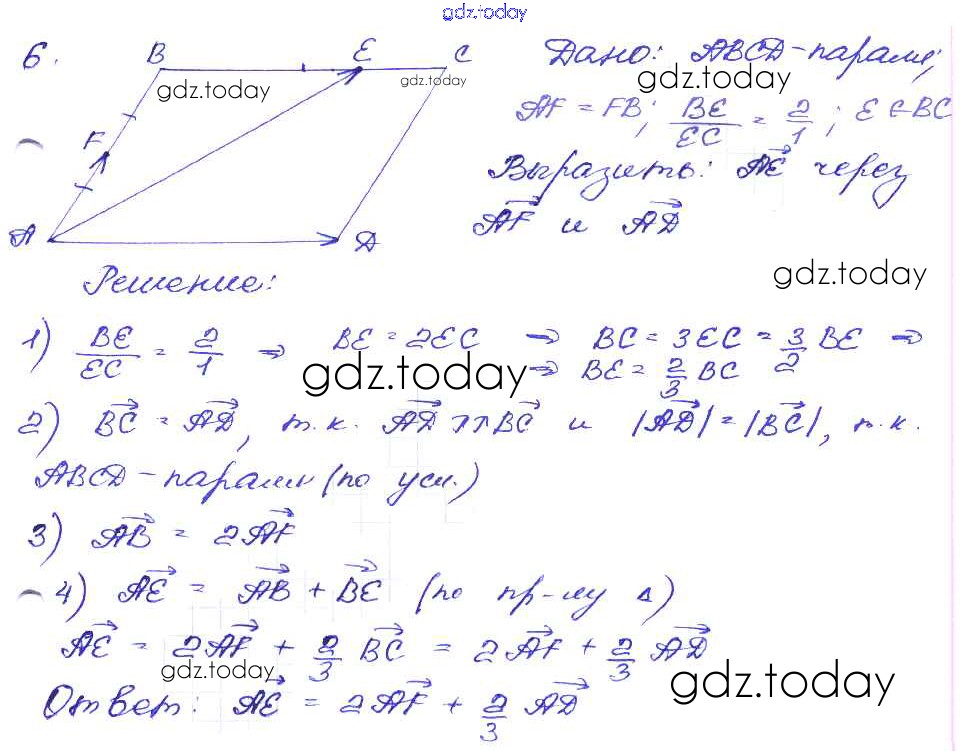 gdz.today
6.
B E C
F
A D
gdz.today
gdz.today
Дано: ABCD-парал.;
AF = FB; BE/EC = 2/1; E ∈ BC
gdz.today
Выразить: AE⃗ через
AF⃗ и AD⃗
gdz.today
Решение:
1) BE/EC = 2/1 ⇒ BE = 2EC ⇒ BC = 3EC = 3/2 BE ⇒
⇒ BE = 2/3 BC
gdz.today
2) BC⃗ = AD⃗, т.к. AD⃗ ↑↑ BC⃗ и |AD⃗| = |BC⃗|, т.к.
ABCD-парал. (по усл.)
3) AB⃗ = 2AF⃗
gdz.today
4) AE⃗ = AB⃗ + BE⃗ (по пр-лу Δ)
AE⃗ = 2AF⃗ + 2/3 BC⃗ = 2AF⃗ + 2/3 AD⃗
gdz.today
gdz.today
Ответ: AE⃗ = 2AF⃗ + 2/3 AD⃗